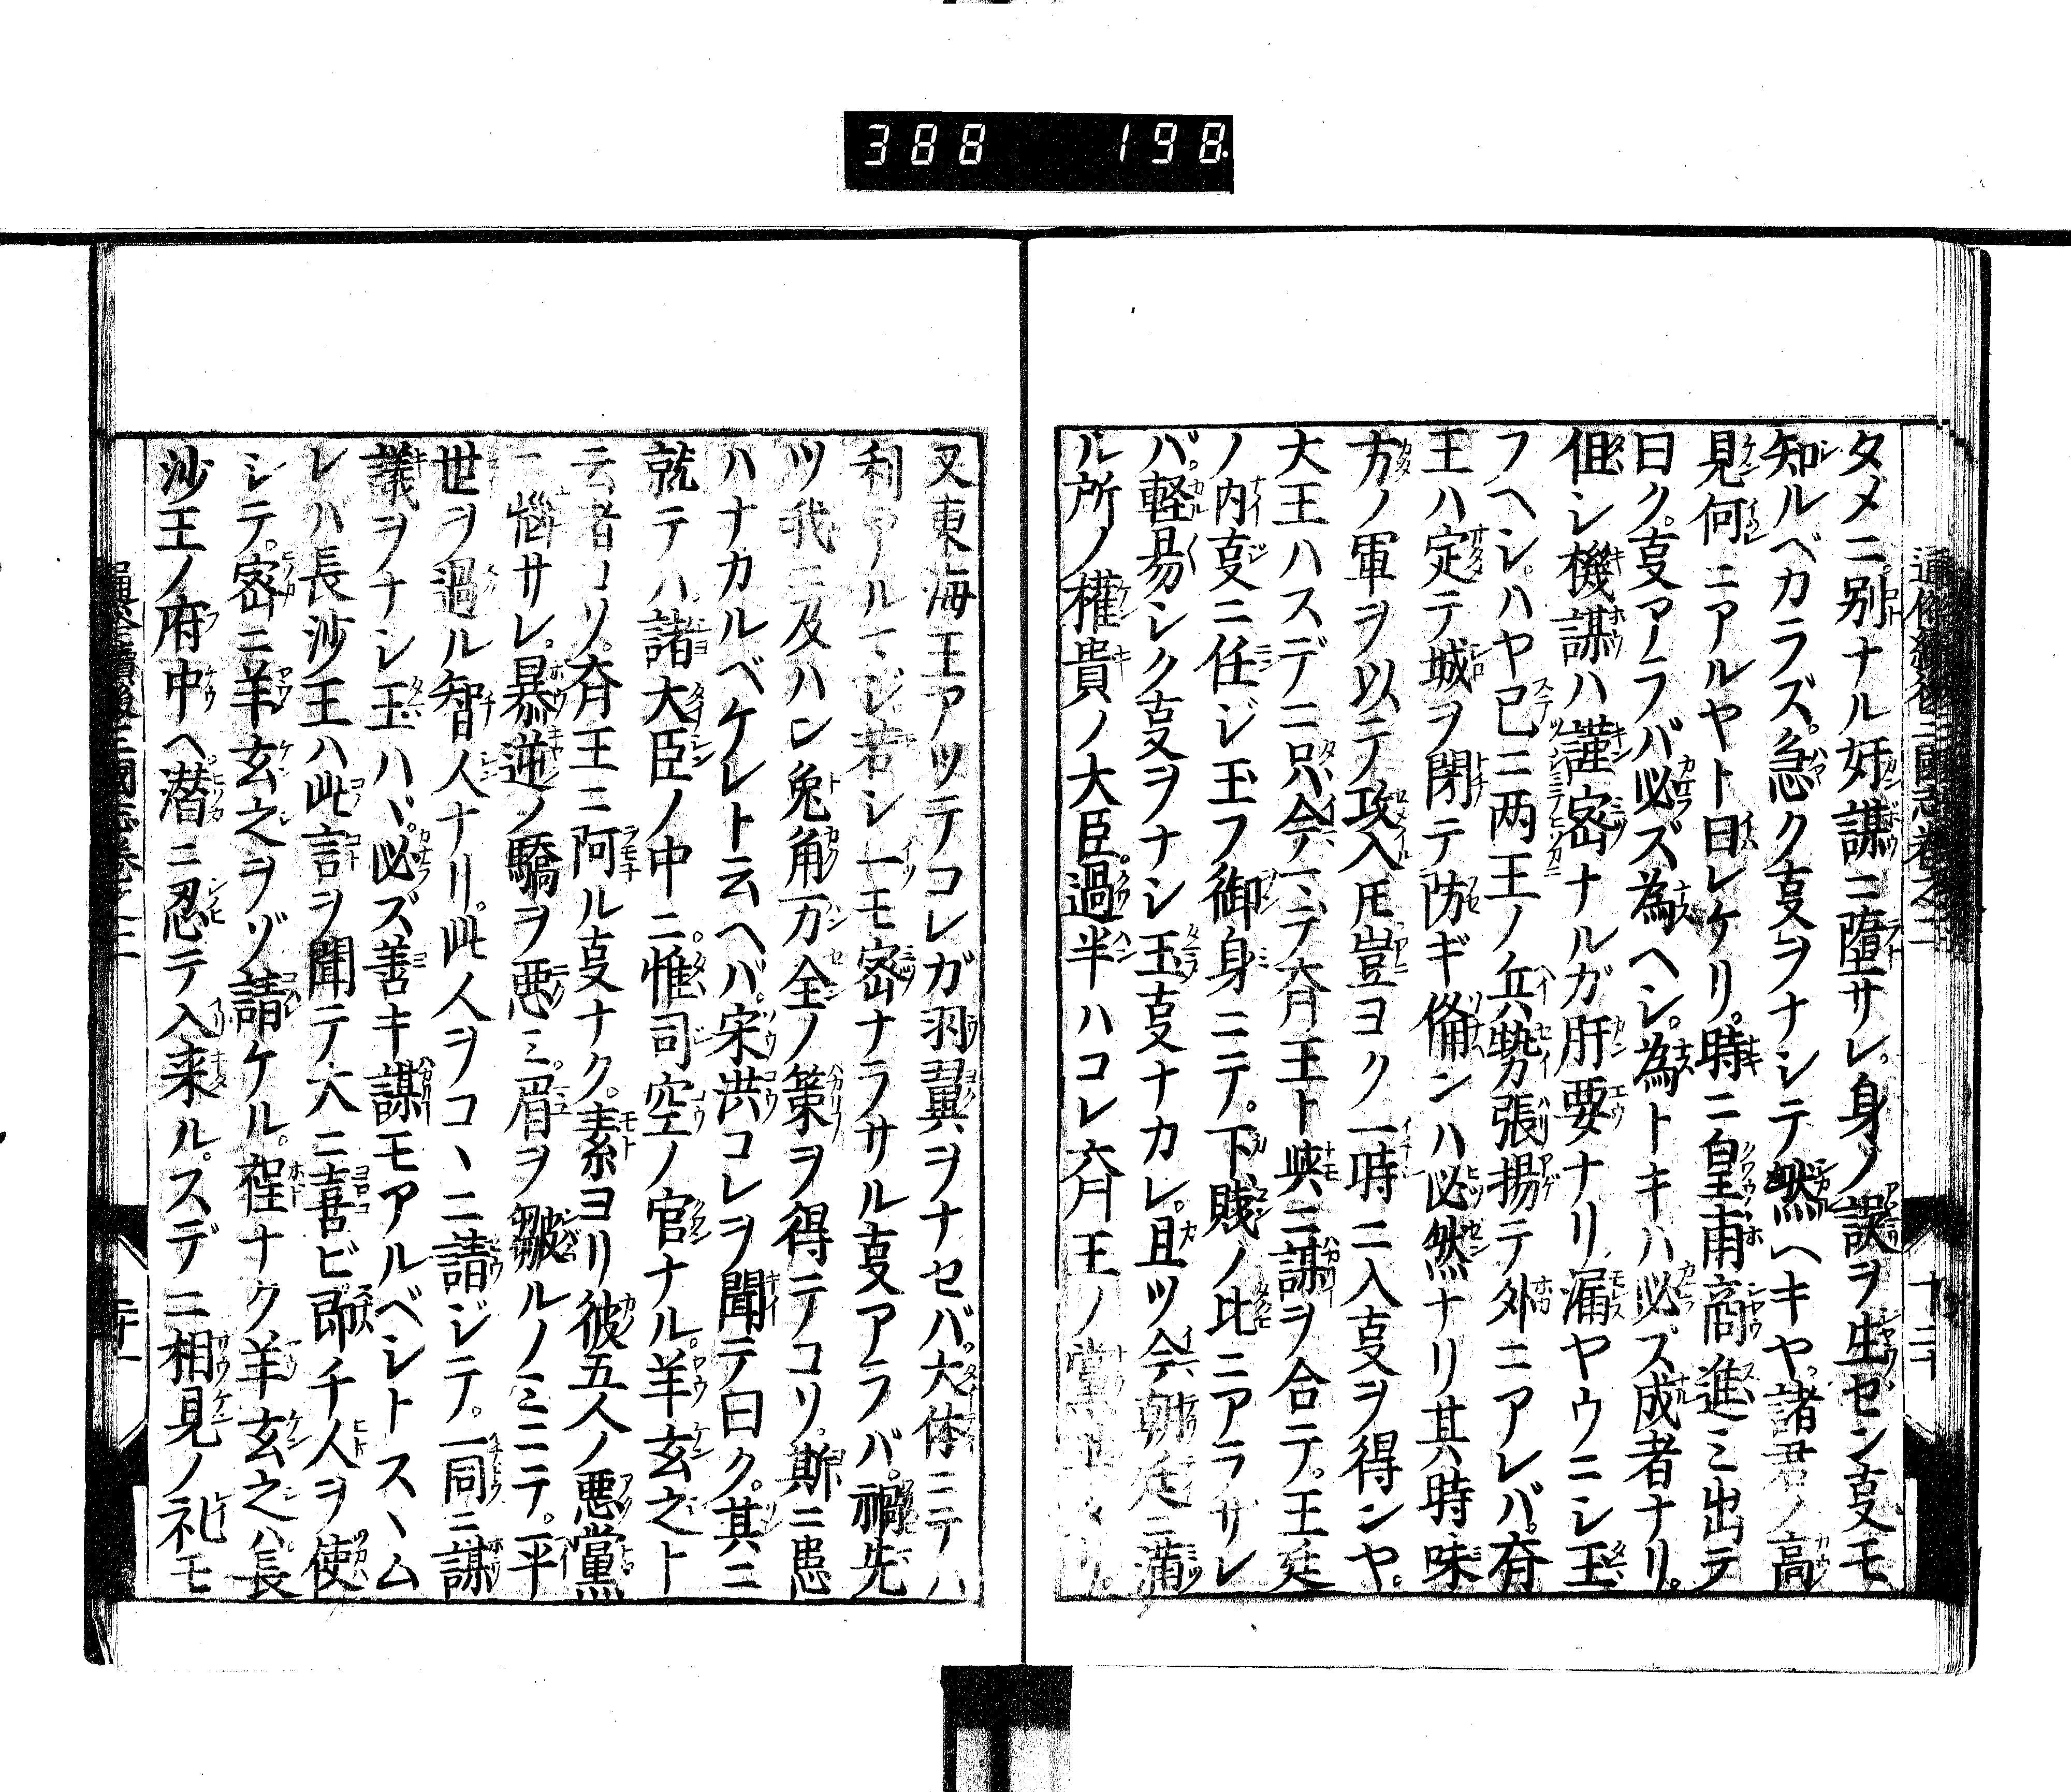 388 198
タメニ別ナル奸謀ニ墮サレ。身ノ誤ヲ生セン㕝モ
知ルベカラズ。急ク㕝ヲナシテ然ヘキヤ。諸君ノ高
見何ニアルヤト曰レケリ。時ニ皇甫商進ミ出テ
曰ク。㕝アラバ必ズ為ヘシ。為トキハ必ズ成者ナリ。
但シ機謀ハ謹密ナルガ肝要ナリ漏ヤウニシ玉
フヘシ。ハヤ已ニ两王ノ兵勢張揚テ外ニアレバ。斉
王ハ定テ城ヲ閉テ防ギ俻ンハ必然ナリ其時味
方ノ軍ヲ以テ攻入𪜈豈ヨク一時ニ入㕝ヲ得ンヤ。
大王ハスデニ只今マデ斉王ト與ニ謀ヲ合テ。王廷
ノ内㕝ニ任ジ玉フ御身ニテ。下賤ノ比ニアラサレ
バ。軽易シク㕝ヲナシ玉㕝ナカレ。且ツ今朝廷ニ満
ル所ノ權貴ノ大臣。過半ハコレ斉王ノ
又東海王アツテコレガ羽翼ヲナセバ。大体ニテハ
利アルマジ。若シ一モ密ナラサル㕝アラバ。禍先
ツ我ニ及ハン兔角万全ノ策ヲ得テコソ。斯ニ患
ハナカルベケレト云ヘバ。宋洪コレヲ聞テ曰ク。其ニ
就テハ。諸大臣ノ中ニ。惟司空ノ官ナル。羊玄之ト
云者コソ。斉王ニ阿ル㕝ナク。素ヨリ彼五人ノ悪黨
ニ惱サレ。暴逆ノ驕ヲ悪ミ。眉ヲ皺ルノミニテ。平
世ヲ過ル智人ナリ。此人ヲコヽニ請ジテ。一同ニ謀
議ヲナシ玉ハヾ。必ズ善キ謀モアルベシトスヽム
レハ長沙王ハ此言ヲ聞テ大ニ喜ビ即チ人ヲ使
シテ。密ニ羊玄之ヲゾ請ケル。程ナク羊玄之ハ。長
沙王ノ府中ヘ潜ニ忍テ入来ル。スデニ相見ノ礼モ